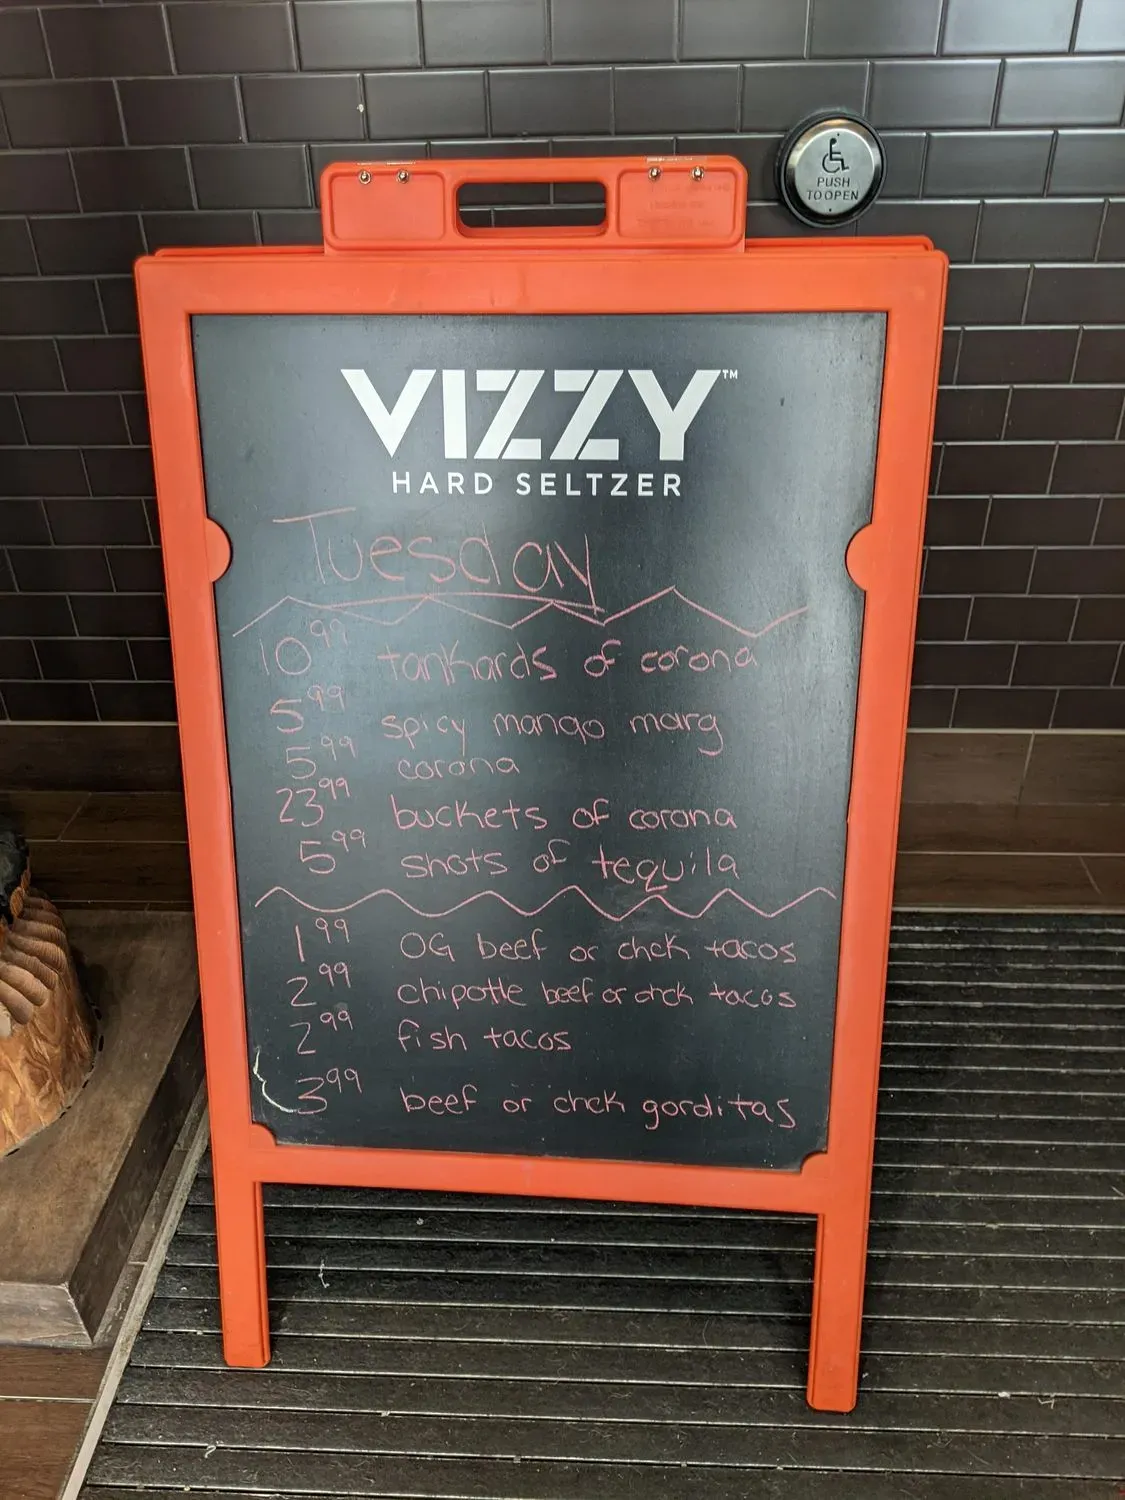 PUSH
TO OPEN
VIZZY™
HARD SELTZER
Tuesday
10⁹⁹ tankards of corona
5⁹⁹ spicy mango marg
5⁹⁹ corona
23⁹⁹ buckets of corona
5⁹⁹ shots of tequila
1⁹⁹ OG beef or chck tacos
2⁹⁹ chipotle beef or chck tacos
2⁹⁹ fish tacos
3⁹⁹ beef or chck gorditas